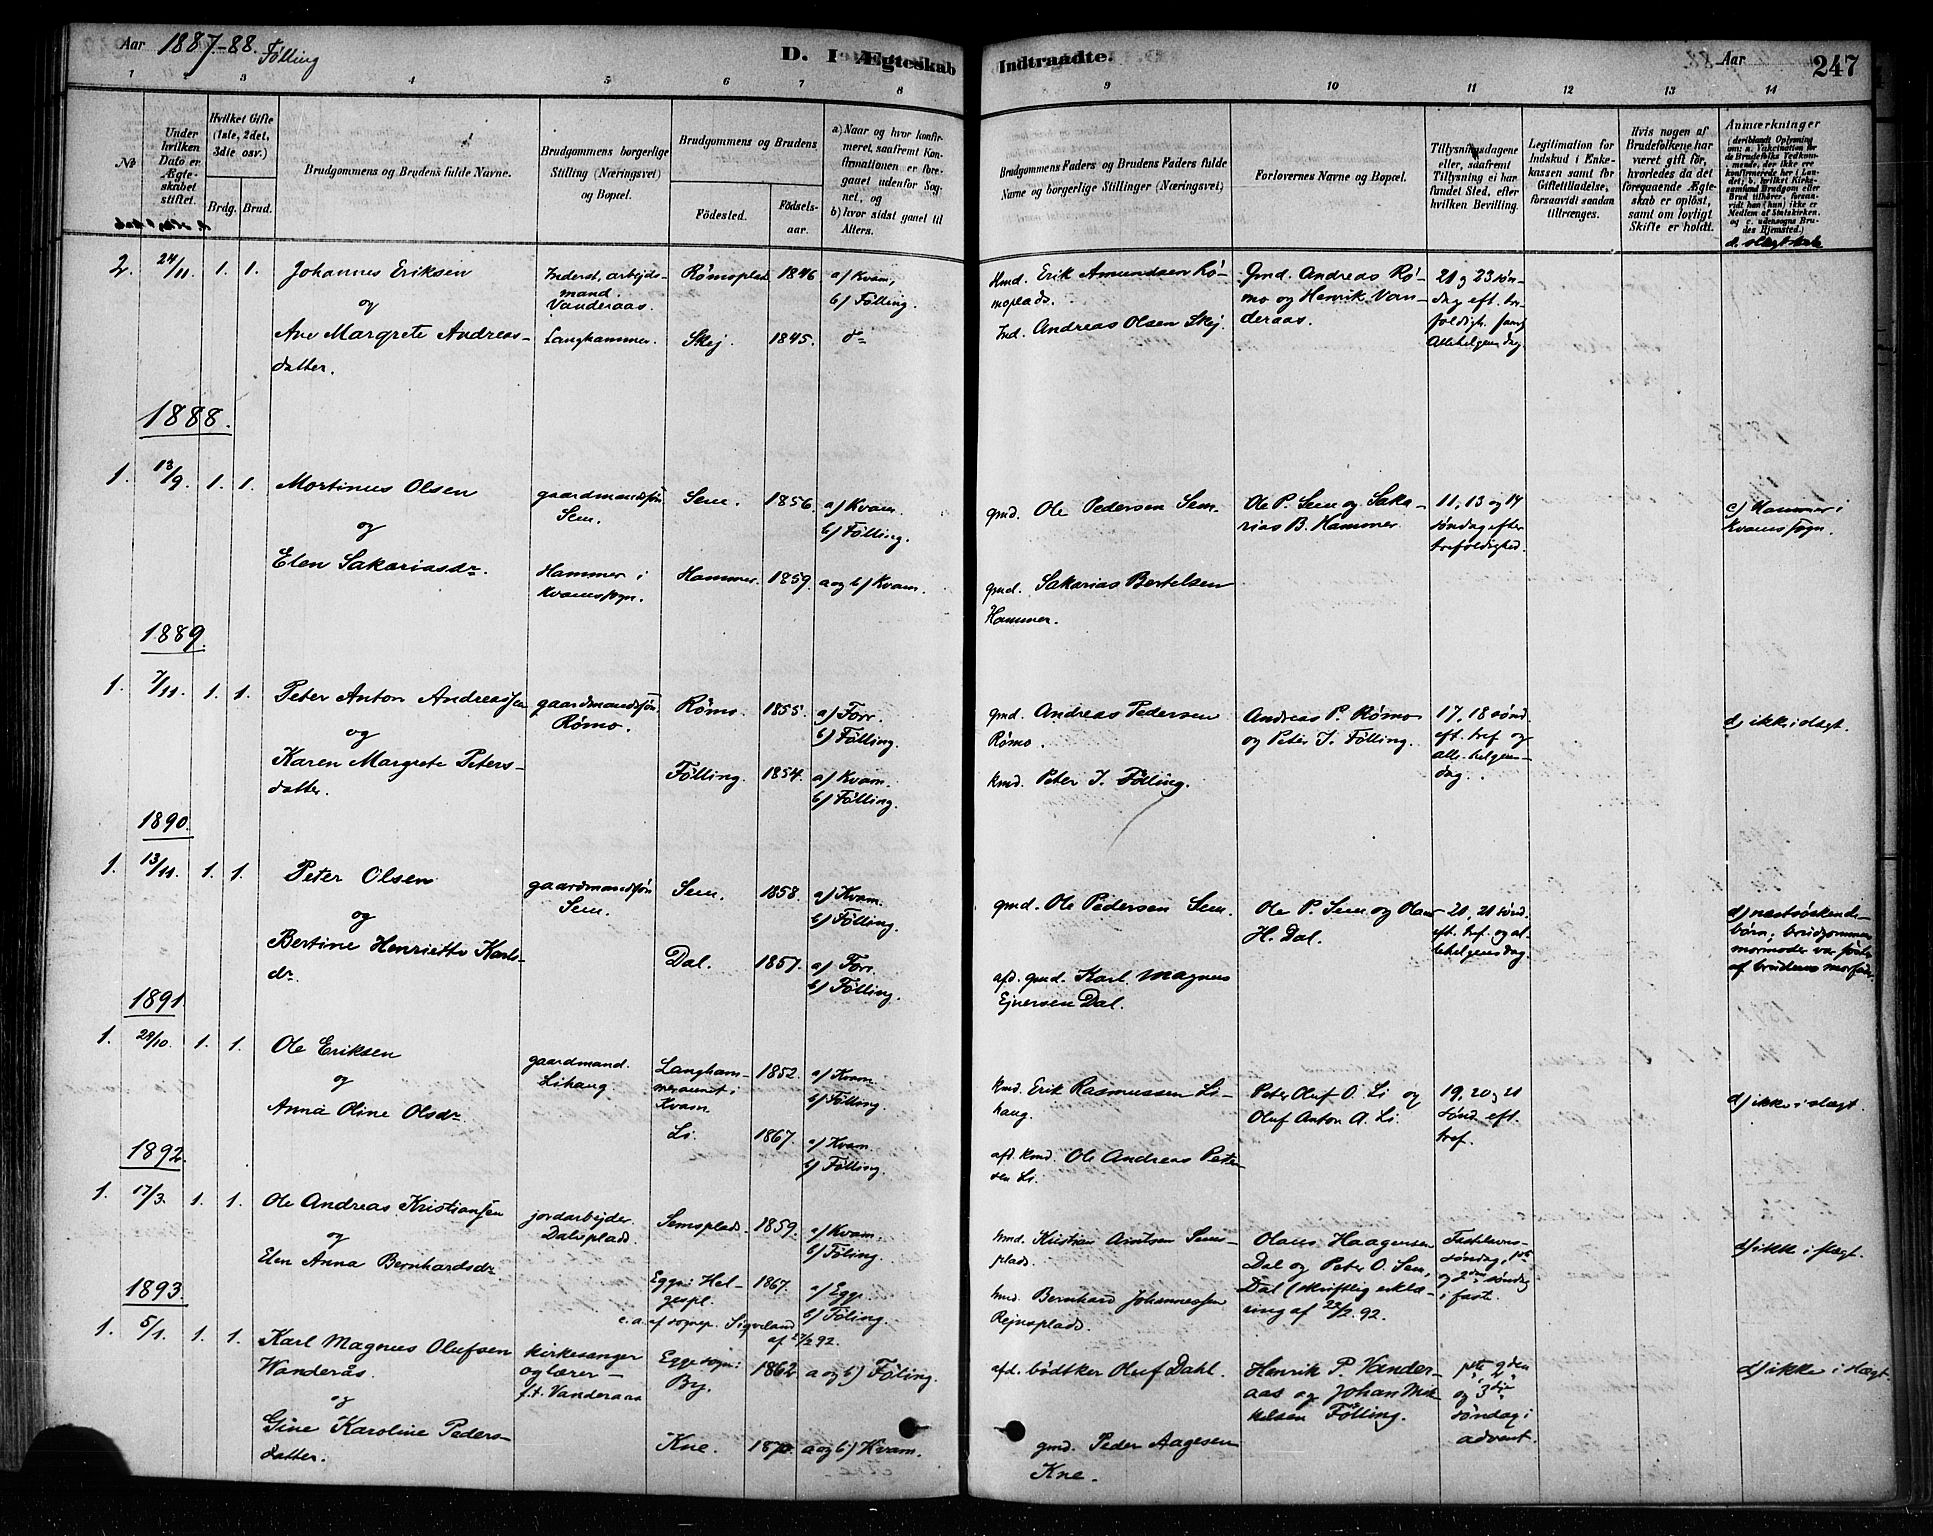 Aar 1887-88. Følling
D. I Ægteskab Indtraadte.
Aar 247
1 2 3 4 5 6 7 8 9 10 11 12 13 14
No
Under hvilken Dato er Ægteskabet stiftet.
Hvilket Gifte (1ste, 2det, 3die osv.)
Brdg. Brud.
Brudgommens og Brudens fulde Navne.
Brudgommens borgerlige Stilling (Næringsvei) og Bopæl.
Brudgommens og Brudens
Födested.
Födsels-aar.
a) Naar og hvor konfirmeret, saafremt Konfirmationen er foregaaet udenfor Sognet, og
b) hvor sidst gaaet til Alters.
Brudgommens Faders og Brudens Faders fulde Navne og borgerlige Stillinger (Næringsvei)
Forlovernes Navne og Bopæl.
Tillysningsdagene eller, saafremt Tillysning ei har fundet Sted, efter hvilken Bevilling.
Legitimation for Indskud i Enkekassen samt for Giftetilladelse, forsaavidt saadan tiltrænges.
Hvis nogen af Brudefolkene har været gift för, hvorledes da det foregaaende Ægteskab er oplöst, samt om lovligt Skifte er holdt.
Anmærkninger
(deriblandt Oplysning om: a. Vaccination for de Brudefolks Vedkommende, der ikke ere konfirmerede her i Landet; b. hvilket Kirkesamfund Brudgom eller Brud tilhører, forsaavidt han (hun) ikke er Medlem af Statskirken. og c. udensogns Brudes Hjemsted.)
d. slægtskab
2. 24/11. 1. 1. Johannes Eriksen
og
Ane Margrete Andreas-
datter.
Inderst, arbejds-
mand.
Vanderaas.
Langhammer.
Rømsplad 1846 a) Kvam,
b) Følling.
Skej. 1845. do
Hmd. Erik Amundsen Rø-
moplads.
Ind. Andreas Olsen Skej.
Gmd. Andreas Rø-
mo og Henrik Van-
deraas.
21 og 23 søn-
dag eft. tre-
foldigh. samt
Allehelgens dag.
1888.
1. 13/9. 1. 1. Mortinus Olsen
og
Elen Sakariasdr.
gaardmandssøn
Sem.
Hammer i
Kvams sogn.
Sem. 1856. a) Kvam.
b) Følling.
Hammer. 1859. a og b) Kvam.
gmd. Ole Pedersen Sem.
gmd. Sakarias Bertelsen
Hammer.
Ole P. Sem og Saka-
rias B. Hammer
11, 13 og 14
søndag efter
trefoldighed.
c) Hammer i
Kvams sogn.
1889.
1. 7/11. 1. 1. Peter Anton Andreassen
og
Karen Margrete Peters-
datter.
gaardmandssøn.
Rømo.
Rømo. 1855. a) Forr.
b) Følling.
Følling. 1854. a) Kvam.
b) Følling.
gmd. Andreas Pedersen
Rømo.
kmd. Peter I. Følling.
Andreas P. Rømo
og Peter I. Følling.
17, 18 sønd.
eft. tref og
alle helgens-
dag.
d) ikke i slægt.
1890.
1. 13/11. 1. 1. Peter Olsen
og
Bertine Henriette Karls-
dr.
gaardmandssøn
Sem.
Sem. 1858. a) Kvam.
b) Følling.
Dal. 1857. a) Forr.
b) Følling.
gmd. Ole Pedersen Sem.
afd. gmd. Karl Magnus
Ejnersen Dal.
Ole P. Sem og Olaus
H. Dal.
20, 21 sønd.
eft. tref. og al-
lehelgensdag.
d) næstsøskende-
børn; brudgommens
mormoder var søster
af brudens morfader
1891.
1. 28/10. 1. 1. Ole Eriksen
og
Anna Oline Olsdr.
gaardmand.
Lihaug
Langham-
meraunet i
Kvam 1852. a) Kvam.
b) Følling.
Li. 1867. a) Kvam.
b) Følling.
kmd. Erik Rasmussen Li-
haug.
afd. kmd. Ole Andreas Peter-
sen Li.
Peter Oluf O. Li og
Oluf Anton A. Li.
19, 20 og 21
sønd. eft.
tref.
d) ikke i slægt.
1892.
1. 17/3. 1. 1. Ole Andreas Kristiansen
og
Elen Anna Bernhardsdr.
jordarbejder.
Dalsplads.
Semsplads. 1859. a) Kvam.
b) Føling.
Egge: Hel-
gespl. 1867. a) Egge
b) Føling.
hmd. Kristian Arntsen Sems-
plads.
hmd. Bernhard Johannessen
Rejnsplads.
Olaus Haagensen
Dal og Peter O. Sem,
Dal (skriftlig erklæ-
ring af 22/2.92.
Fastelavns-
søndag, 1ste
og 2den søndag
i faste.
d) ikke i slægt.
e.a. af sognep. Sigveland
af 27/2 92.
1893.
1. 5/1. 1. 1. Karl Magnus Olufsen
Wanderås
og
Gine Karoline Peders-
datter.
kirkesanger
og lærer -
f.t. Vanderaas
Egge sogn:
By. 1862 a og b) Føling.
Kne. 1870. a og b) Kvam.
afd. bødtker Oluf Dahl.
gmd. Peder Aagesen
Kne.
Henrik P. Vander-
aas og Johan Mik-
kelsen Følling.
1ste, 2den
og 3die
søndag i
advent.
d) ikke i slægt.